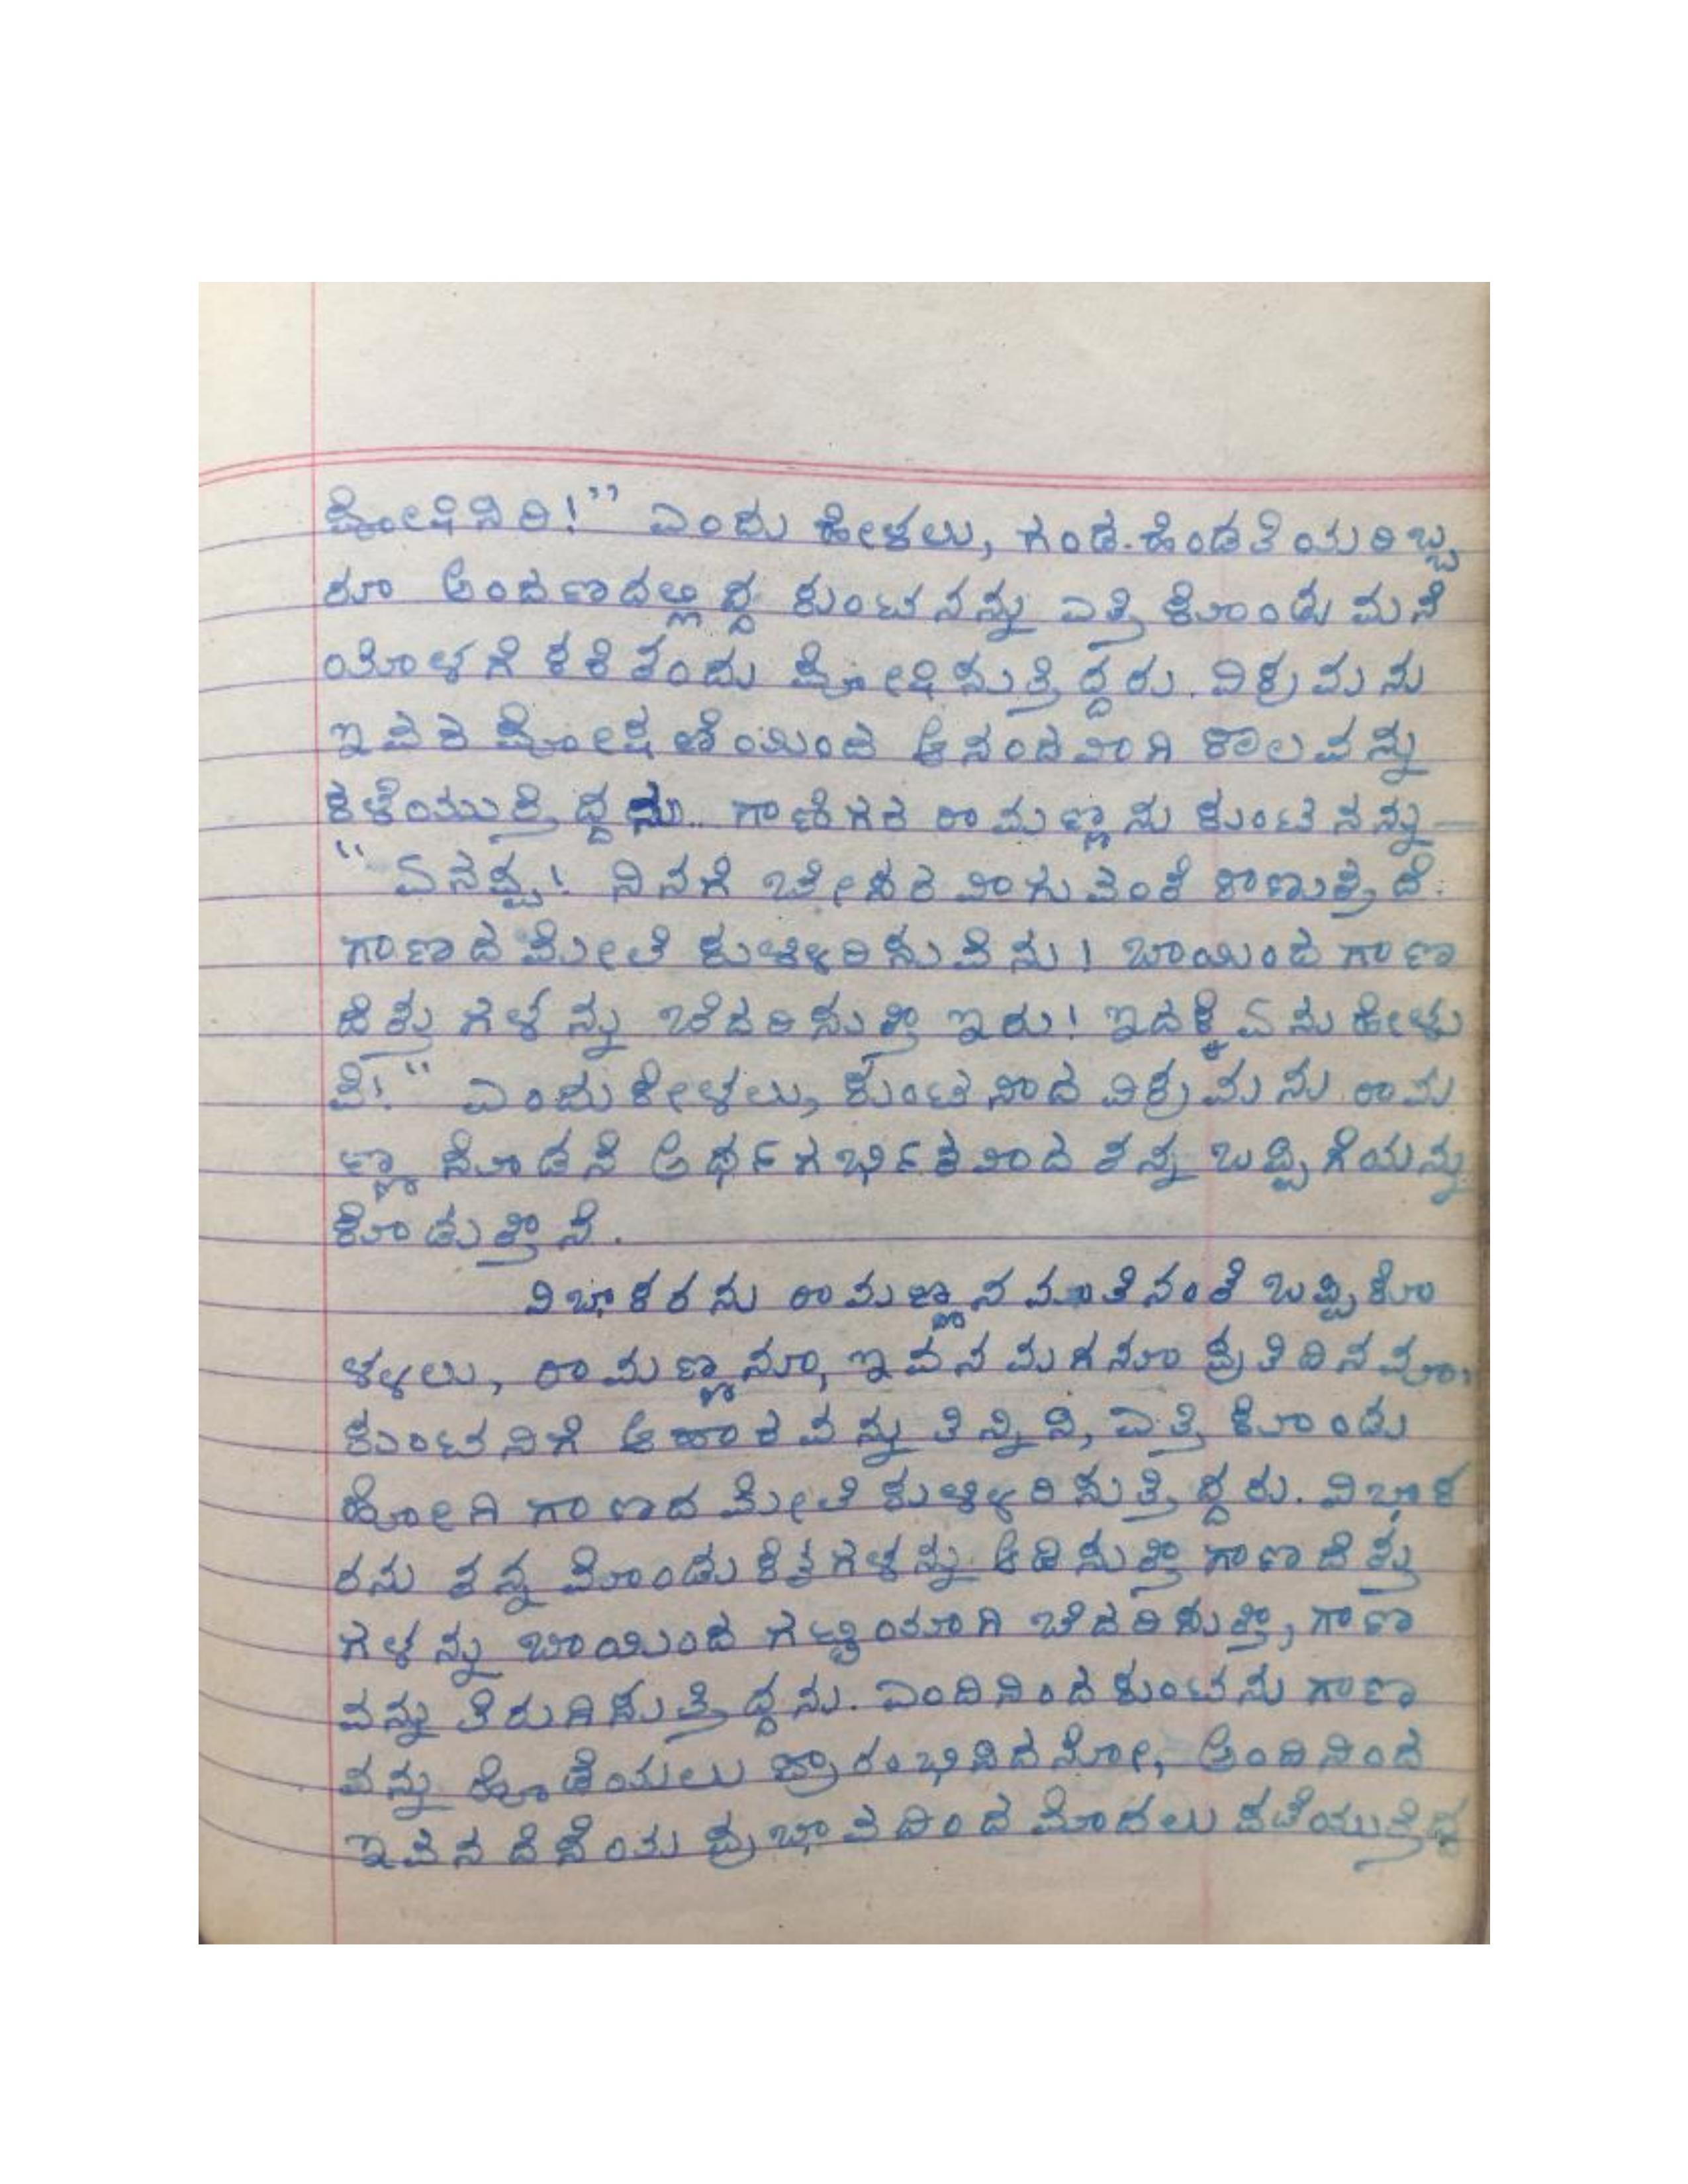 ಪೋಷಿಸಿರಿ!" ಎಂದು ಹೇಳಲು, ಗಂಡ-ಹೆಂಡತಿಯರಿಬ್ಬ
ರೂ ಅಂದಣದಲ್ಲಿದ್ದ ಕುಂಟನನ್ನು ಎತ್ತಿ ಕೊಂಡು ಮನೆ
ಯೊಳಗೆ ಕರೆತಂದು ಪೋಷಿಸುತ್ತಿದ್ದರು. ವಿಕ್ರಮನು
ಇವರ ಪೋಷಣೆಯಿಂದ ಆನಂದವಾಗಿ ಕಾಲವನ್ನು
ಕಳೆಯುತ್ತಿದ್ದನು. ಗಾಣಿಗರ ರಾಮಣ್ಣನು ಕುಂಟನನ್ನು —
"ಏನಪ್ಪ! ನಿನಗೆ ಬೇಸರವಾಗುವಂತೆ ಕಾಣುತ್ತದೆ.
ಗಾಣದ ಮೇಲೆ ಕುಳ್ಳರಿಸುವೆನು! ಬಾಯಿಂದ ಗಾಣ
ದೆತ್ತು ಗಳನ್ನು ಬೆದರಿಸುತ್ತಾ ಇರು! ಇದಕ್ಕೆ ಏನು ಹೇಳು
ವಿ!" ಎಂದು ಕೇಳಲು, ಕುಂಟನಾದ ವಿಕ್ರಮನು ರಾಮ
ಣ್ಣ ನೊಡನೆ ಅರ್ಥಗರ್ಭಿತವಾದ ತನ್ನ ಒಪ್ಪಿಗೆಯನ್ನು
ಕೊಡುತ್ತಾನೆ.
ವಿಭಾಕರನು ರಾಮಣ್ಣನ ಮಾತಿನಂತೆ ಒಪ್ಪಿಕೊ
ಳ್ಳಲು, ರಾಮಣ್ಣನೂ, ಇವನ ಮಗನೂ ಪ್ರತಿದಿನವೂ,
ಕುಂಟನಿಗೆ ಆಹಾರವನ್ನು ತಿನ್ನಿಸಿ, ಎತ್ತಿ ಕೊಂಡು
ಹೋಗಿ ಗಾಣದ ಮೇಲೆ ಕುಳ್ಳರಿಸುತ್ತಿದ್ದರು. ವಿಭಾಕ
ರನು ತನ್ನ ಮೊಂಡು ಕೈಗಳನ್ನು ಆಡಿಸುತ್ತಾ ಗಾಣದೆತ್ತು
ಗಳನ್ನು ಬಾಯಿಂದ ಗಟ್ಟಿಯಾಗಿ ಬೆದರಿಸುತ್ತಾ, ಗಾಣ
ವನ್ನು ತಿರುಗಿಸುತ್ತಿದ್ದನು. ಎಂದಿನಿಂದ ಕುಂಟನು ಗಾಣ
ವನ್ನು ಹೊಡೆಯಲು ಪ್ರಾರಂಭಿಸಿದನೋ, ಅಂದಿನಿಂದ
ಇವನ ದೆಸೆಯ ಪ್ರಭಾವದಿಂದ ಮೊದಲು ನಡೆಯುತ್ತಿದ್ದ